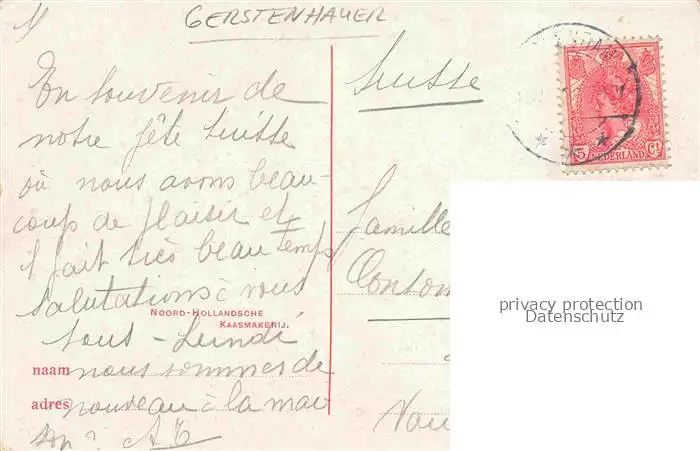 GERSTENHAUER
En souvenir de
notre fête Suisse
où nous avons beau-
coup de plaisir et
il fait très beau temps
salutations à vous
NOORD-HOLLANDSCHE
KAASMAKERIJ.
tous - Lundi
naam nous sommes de
adres nouveau à la mai
son. A E
Suisse
5 NEDERLAND Ct
Famille
privacy protection
Datenschutz
Vau